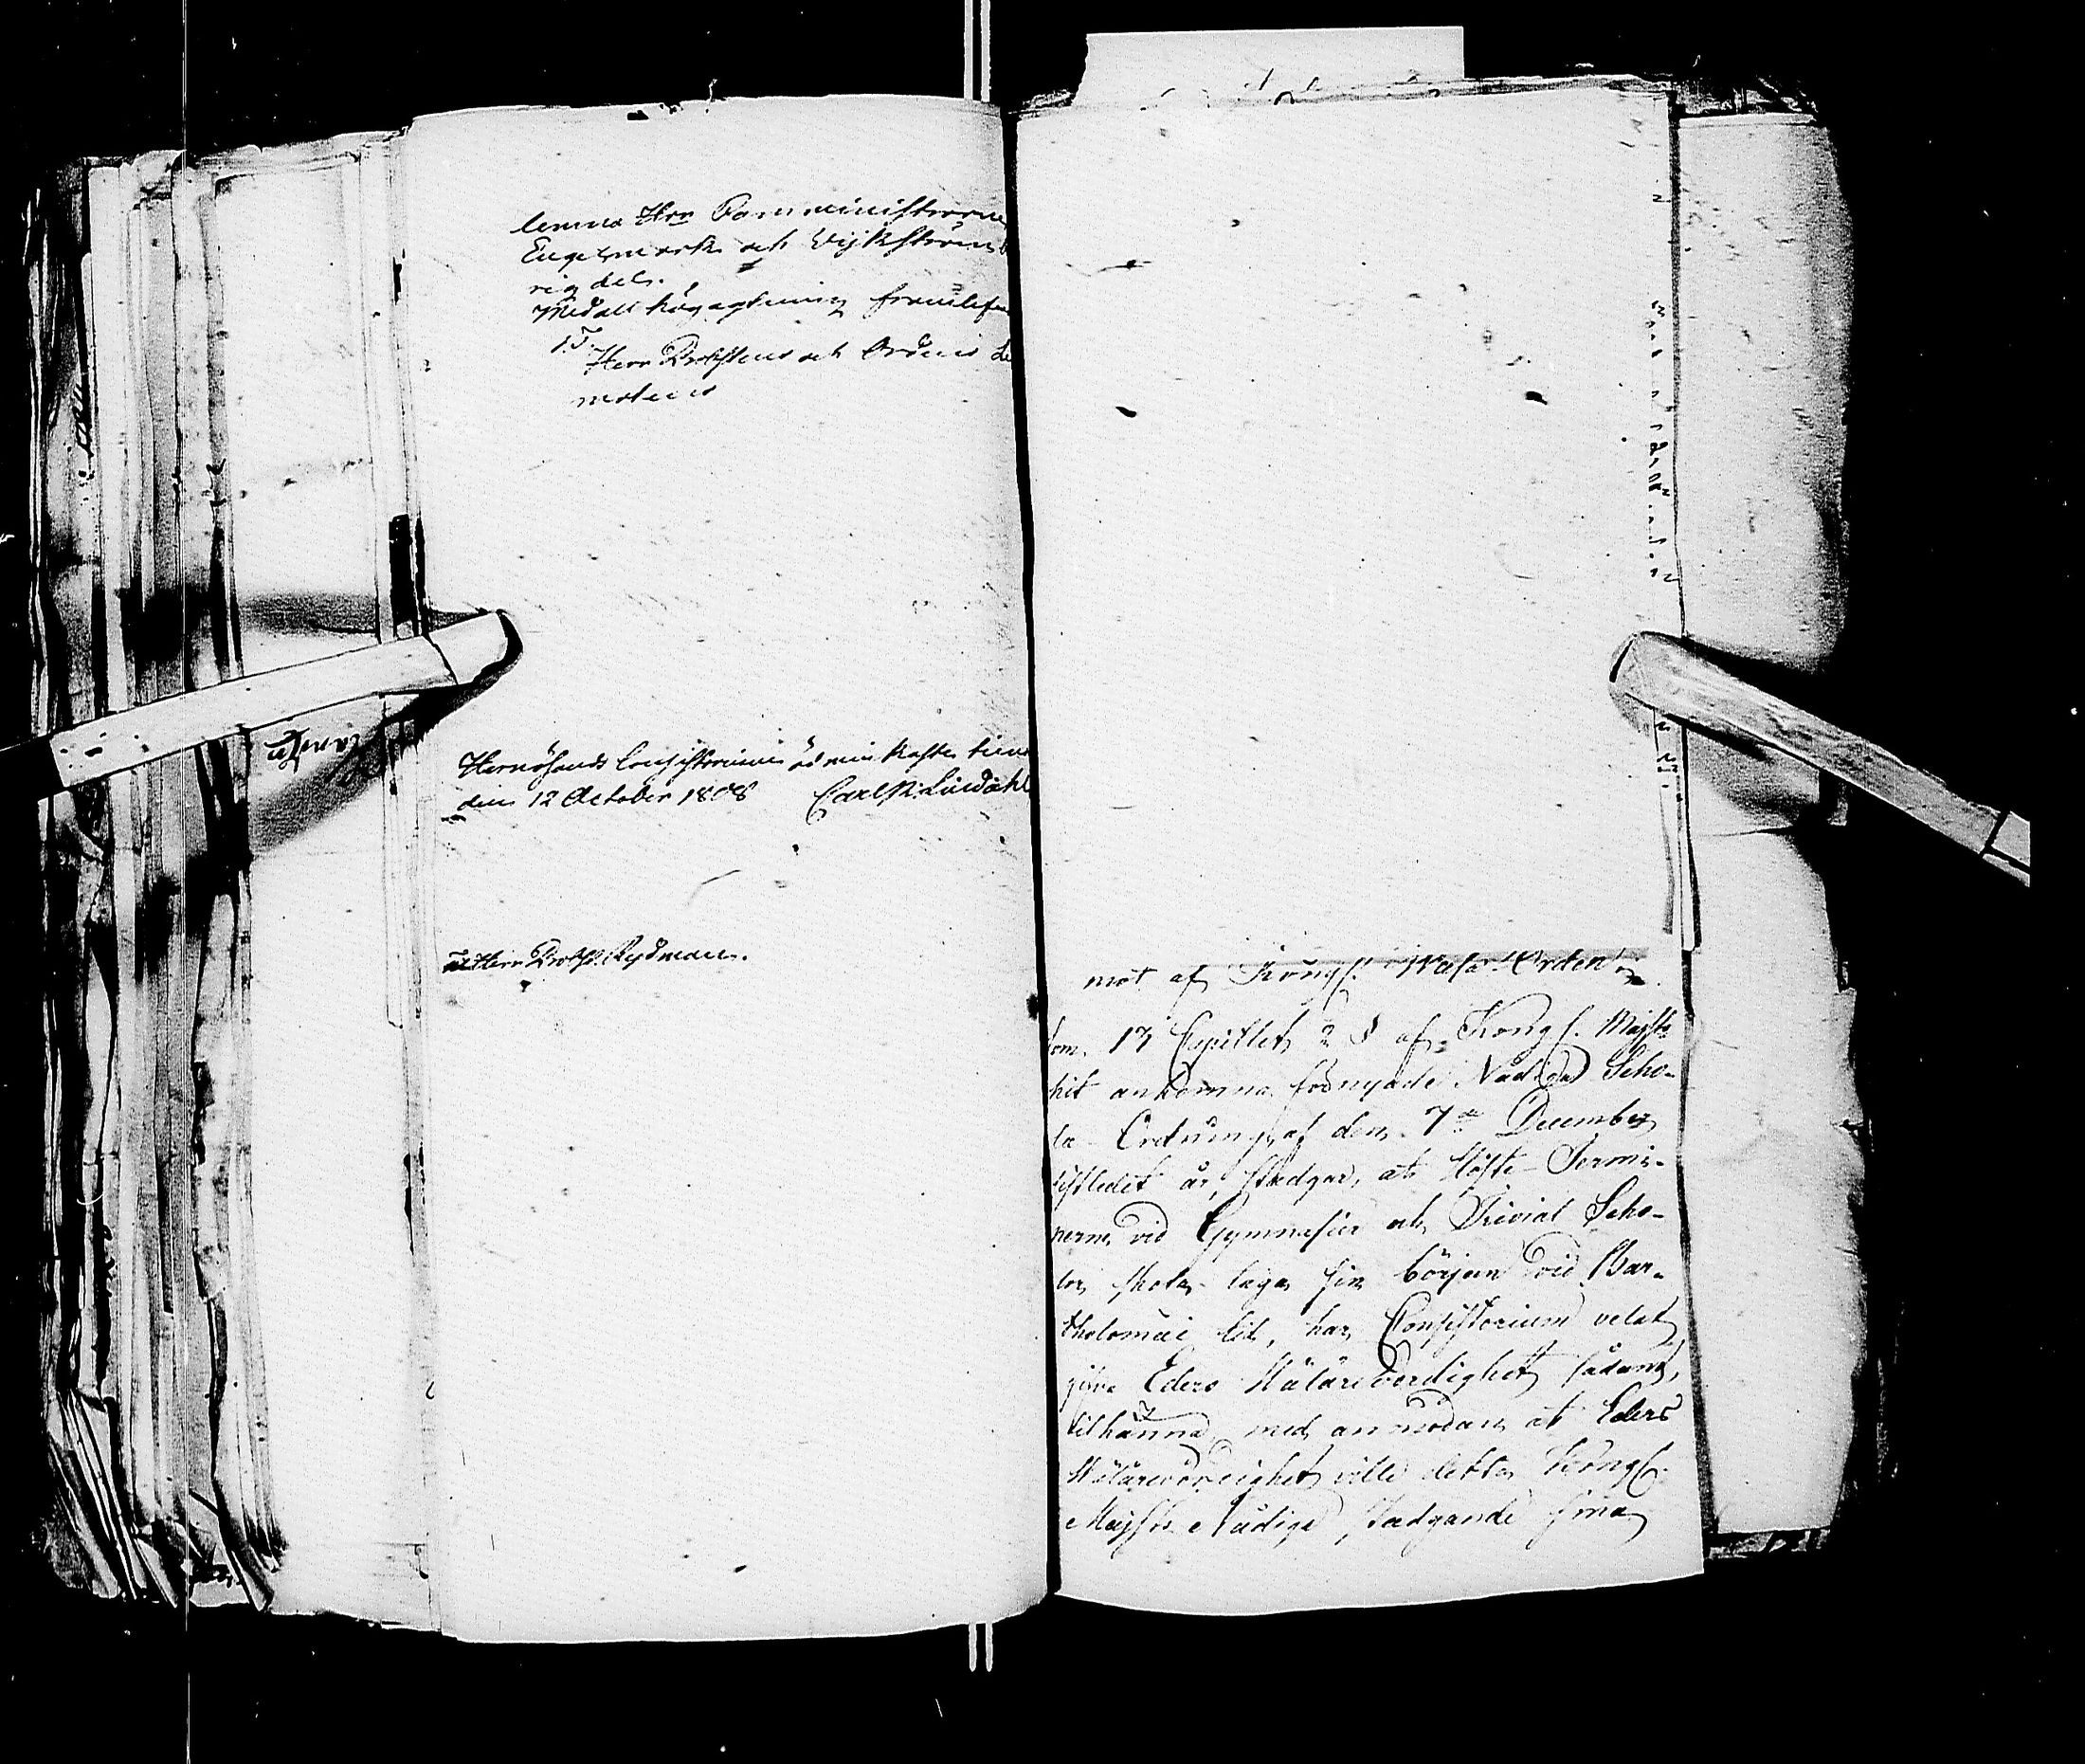 lemna Hrr Comministrarne
Engelmark och Wijkström b
rig del.
Med all högagtning framlefver
Herr Probstens och Ordens Le
motens
Hernösands Consistorium
den 12 October 1808 Carl R. Lindahl
Herr Probst Rydman.
mot af Kongl. Wasa-Orden
Som 17 Capitlet 2 § af Kongl. Majsts
hit ankomna förnyade Nådiga Scho-
la-Ordning af den 7de December
sistledit år, stadgar, at Höste-Termi-
nerne vid Gymnasier och Trivial Scho-
lor skola taga sin början vid Bar-
tholomæi tid, har Consistorium velat
gifva Eders Wälärevördighet sådant,
tilkänna med anmodan at Eders
Wälärevördighet ville detta Kongl.
Majsts Nådiga stadgande sina